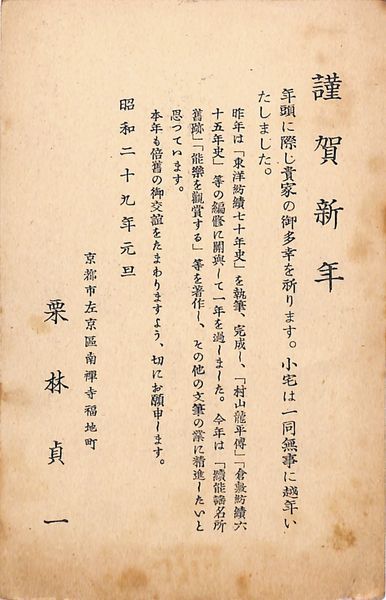 謹賀新年
年頭に際し貴家の御多幸を祈ります。小宅は一同無事に越年い
たしました。
昨年は「東洋紡績七十年史」を執筆、完成し、「村山龍平傳」「倉敷紡績六
十五年史」等の編纂に關與して一年を過しました。今年は「續能謠名所
舊跡」「能樂を觀賞する」等を著作し、その他の文筆の業に精進したいと
思つています。
本年も倍舊の御交誼をたまわりますよう、切にお願申します。
昭和二十九年元旦
京都市左京區南禪寺福地町
栗林貞一